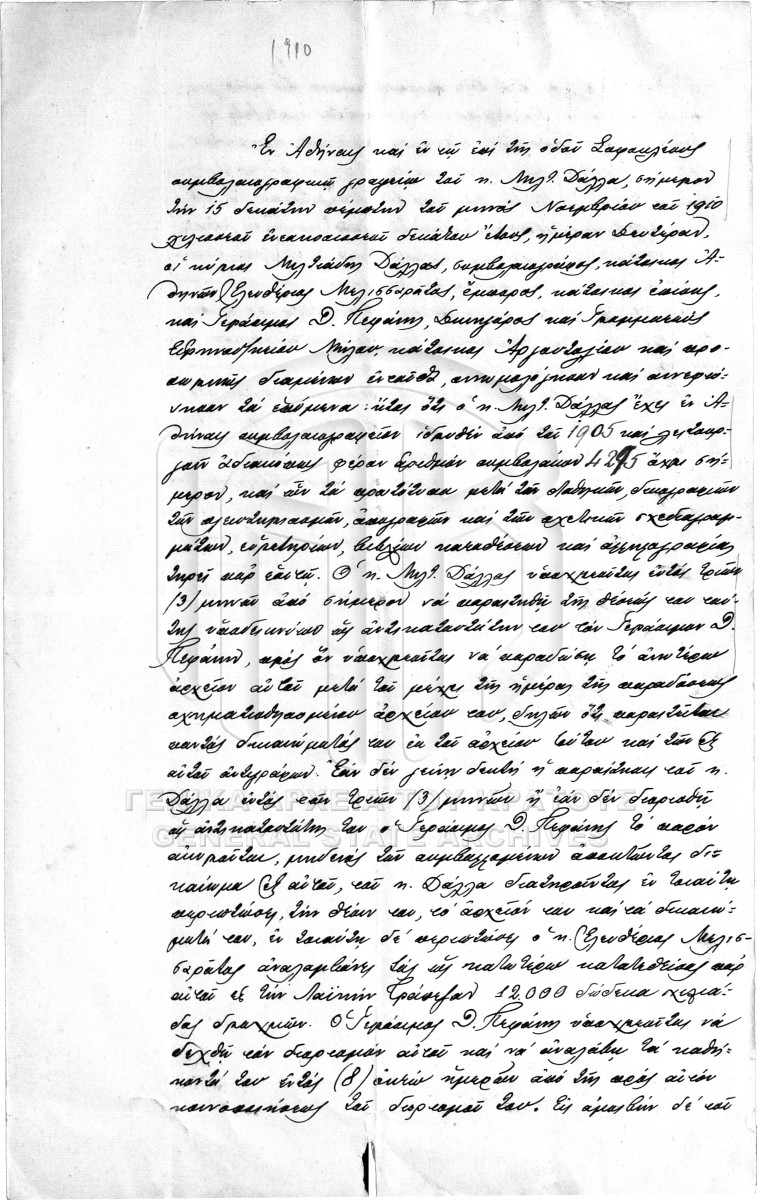 1910
Ἐν Ἀθήναις καὶ ἐν τῷ ἐπὶ τῆς ὁδοῦ Σοφοκλέους
συμβολαιογραφικῷ γραφείῳ τοῦ κ. Μιλτ. Δάλλα, σήμερον
τὴν 15 δεκάτην πέμπτην τοῦ μηνὸς Νοεμβρίου τοῦ 1910
χιλιοστοῦ ἐννεακοσιοστοῦ δεκάτου ἔτους, ἡμέραν Δευτέραν,
οἱ κύριοι Μιλτιάδης Δάλλας, συμβολαιογράφος, κάτοικος Ἀ-
θηνῶν, Ἐλευθέριος Μελισσαρᾶτος, ἔμπορος, κάτοικος ἐπίσης,
καὶ Γεράσιμος Δ. Πεφάνης, Δικηγόρος καὶ Γραμματεὺς
Εἰρηνοδικείου Μήλου, κάτοικος Ἀργοστολίου καὶ προ-
σωρινῶς διαμένων ἐνταῦθα, συνωμολόγησαν καὶ συνεφώ-
νησαν τὰ ἑπόμενα: ὅτι ὁ κ. Μιλτ. Δάλλας ἔχει ἐν Ἀ-
θήναις συμβολαιογραφεῖον ἱδρυθὲν ἀπὸ τοῦ 1905 καὶ λειτουρ-
γοῦν ἀδιακόπως φέρον ἀριθμὸν συμβολαίων 4295 ἄχρι σή-
μερον, καὶ ὧν τὰ πρωτότυπα μετὰ τῶν διαθηκῶν, δικογραφιῶν
τῶν πλειστηριασμῶν, ἀπογραφῶν καὶ τῶν σχετικῶν σχεδιαγραμ-
μάτων, εὑρετηρίων, βιβλίων καταθέσεων καὶ ἀλληλογραφίας
τηρεῖ παρ' ἑαυτῷ. Ὁ κ. Μιλτ. Δάλλας ὑποχρεοῦται ἐντὸς τριῶν
(3) μηνῶν ἀπὸ σήμερον νὰ παραιτηθῇ τῆς θέσεώς του ταύ-
της ὑποδεικνύων ὡς ἀντικαταστάτην του τὸν Γεράσιμον Δ.
Πεφάνην, πρὸς ὃν ὑποχρεοῦται νὰ παραδώσῃ τὸ ἀνωτέρω
ἀρχεῖον αὐτοῦ μετὰ τοῦ μέχρι τῆς ἡμέρας τῆς παραδόσεως
σχηματισθησομένου ἀρχείου του, δηλῶν ὅτι παραιτεῖται
παντὸς δικαιώματός του ἐκ τοῦ ἀρχείου τούτου καὶ τῶν ἐξ
αὐτοῦ ἀντιγράφων. Ἐὰν δὲν γείνῃ δεκτὴ ἡ παραίτησις τοῦ κ.
Δάλλα ἐντὸς τῶν τριῶν (3) μηνῶν ἢ ἐὰν δὲν διορισθῇ
ὡς ἀντικαταστάτης του ὁ Γεράσιμος Δ. Πεφάνης τὸ παρὸν
ἀκυροῦται, μηδενὸς τῶν συμβαλλομένων ἀποκτῶντος δι-
καίωμα ἐξ αὐτοῦ, τοῦ κ. Δάλλα διατηροῦντος ἐν τοιαύτῃ
περιπτώσει τὴν θέσιν του, τὸ ἀρχεῖόν του καὶ τὰ δικαιώ-
ματά του, ἐν τοιαύτῃ δὲ περιπτώσει ὁ κ. Ἐλευθέριος Μελισ-
σαρᾶτος ἀναλαμβάνει τὰς ὡς κατωτέρω κατατεθείσας παρ'
αὐτοῦ εἰς τὴν Λαϊκὴν Τράπεζαν 12.000 δώδεκα χιλιά-
δας δραχμῶν. Ὁ Γεράσιμος Δ. Πεφάνης ὑποχρεοῦται νὰ
δεχθῇ τὸν διορισμὸν αὐτοῦ καὶ νὰ ἀναλάβῃ τὰ καθή-
κοντά του ἐντὸς (8) ὀκτὼ ἡμερῶν ἀπὸ τῆς πρὸς αὐτὸν
κοινοποιήσεως τοῦ διορισμοῦ του. Εἰς ἀμοιβὴν δὲ τοῦ
ΓΕΝΙΚΑ ΑΡΧΕΙΑ ΤΟΥ ΚΡΑΤΟΥΣ
GENERAL STATE ARCHIVES